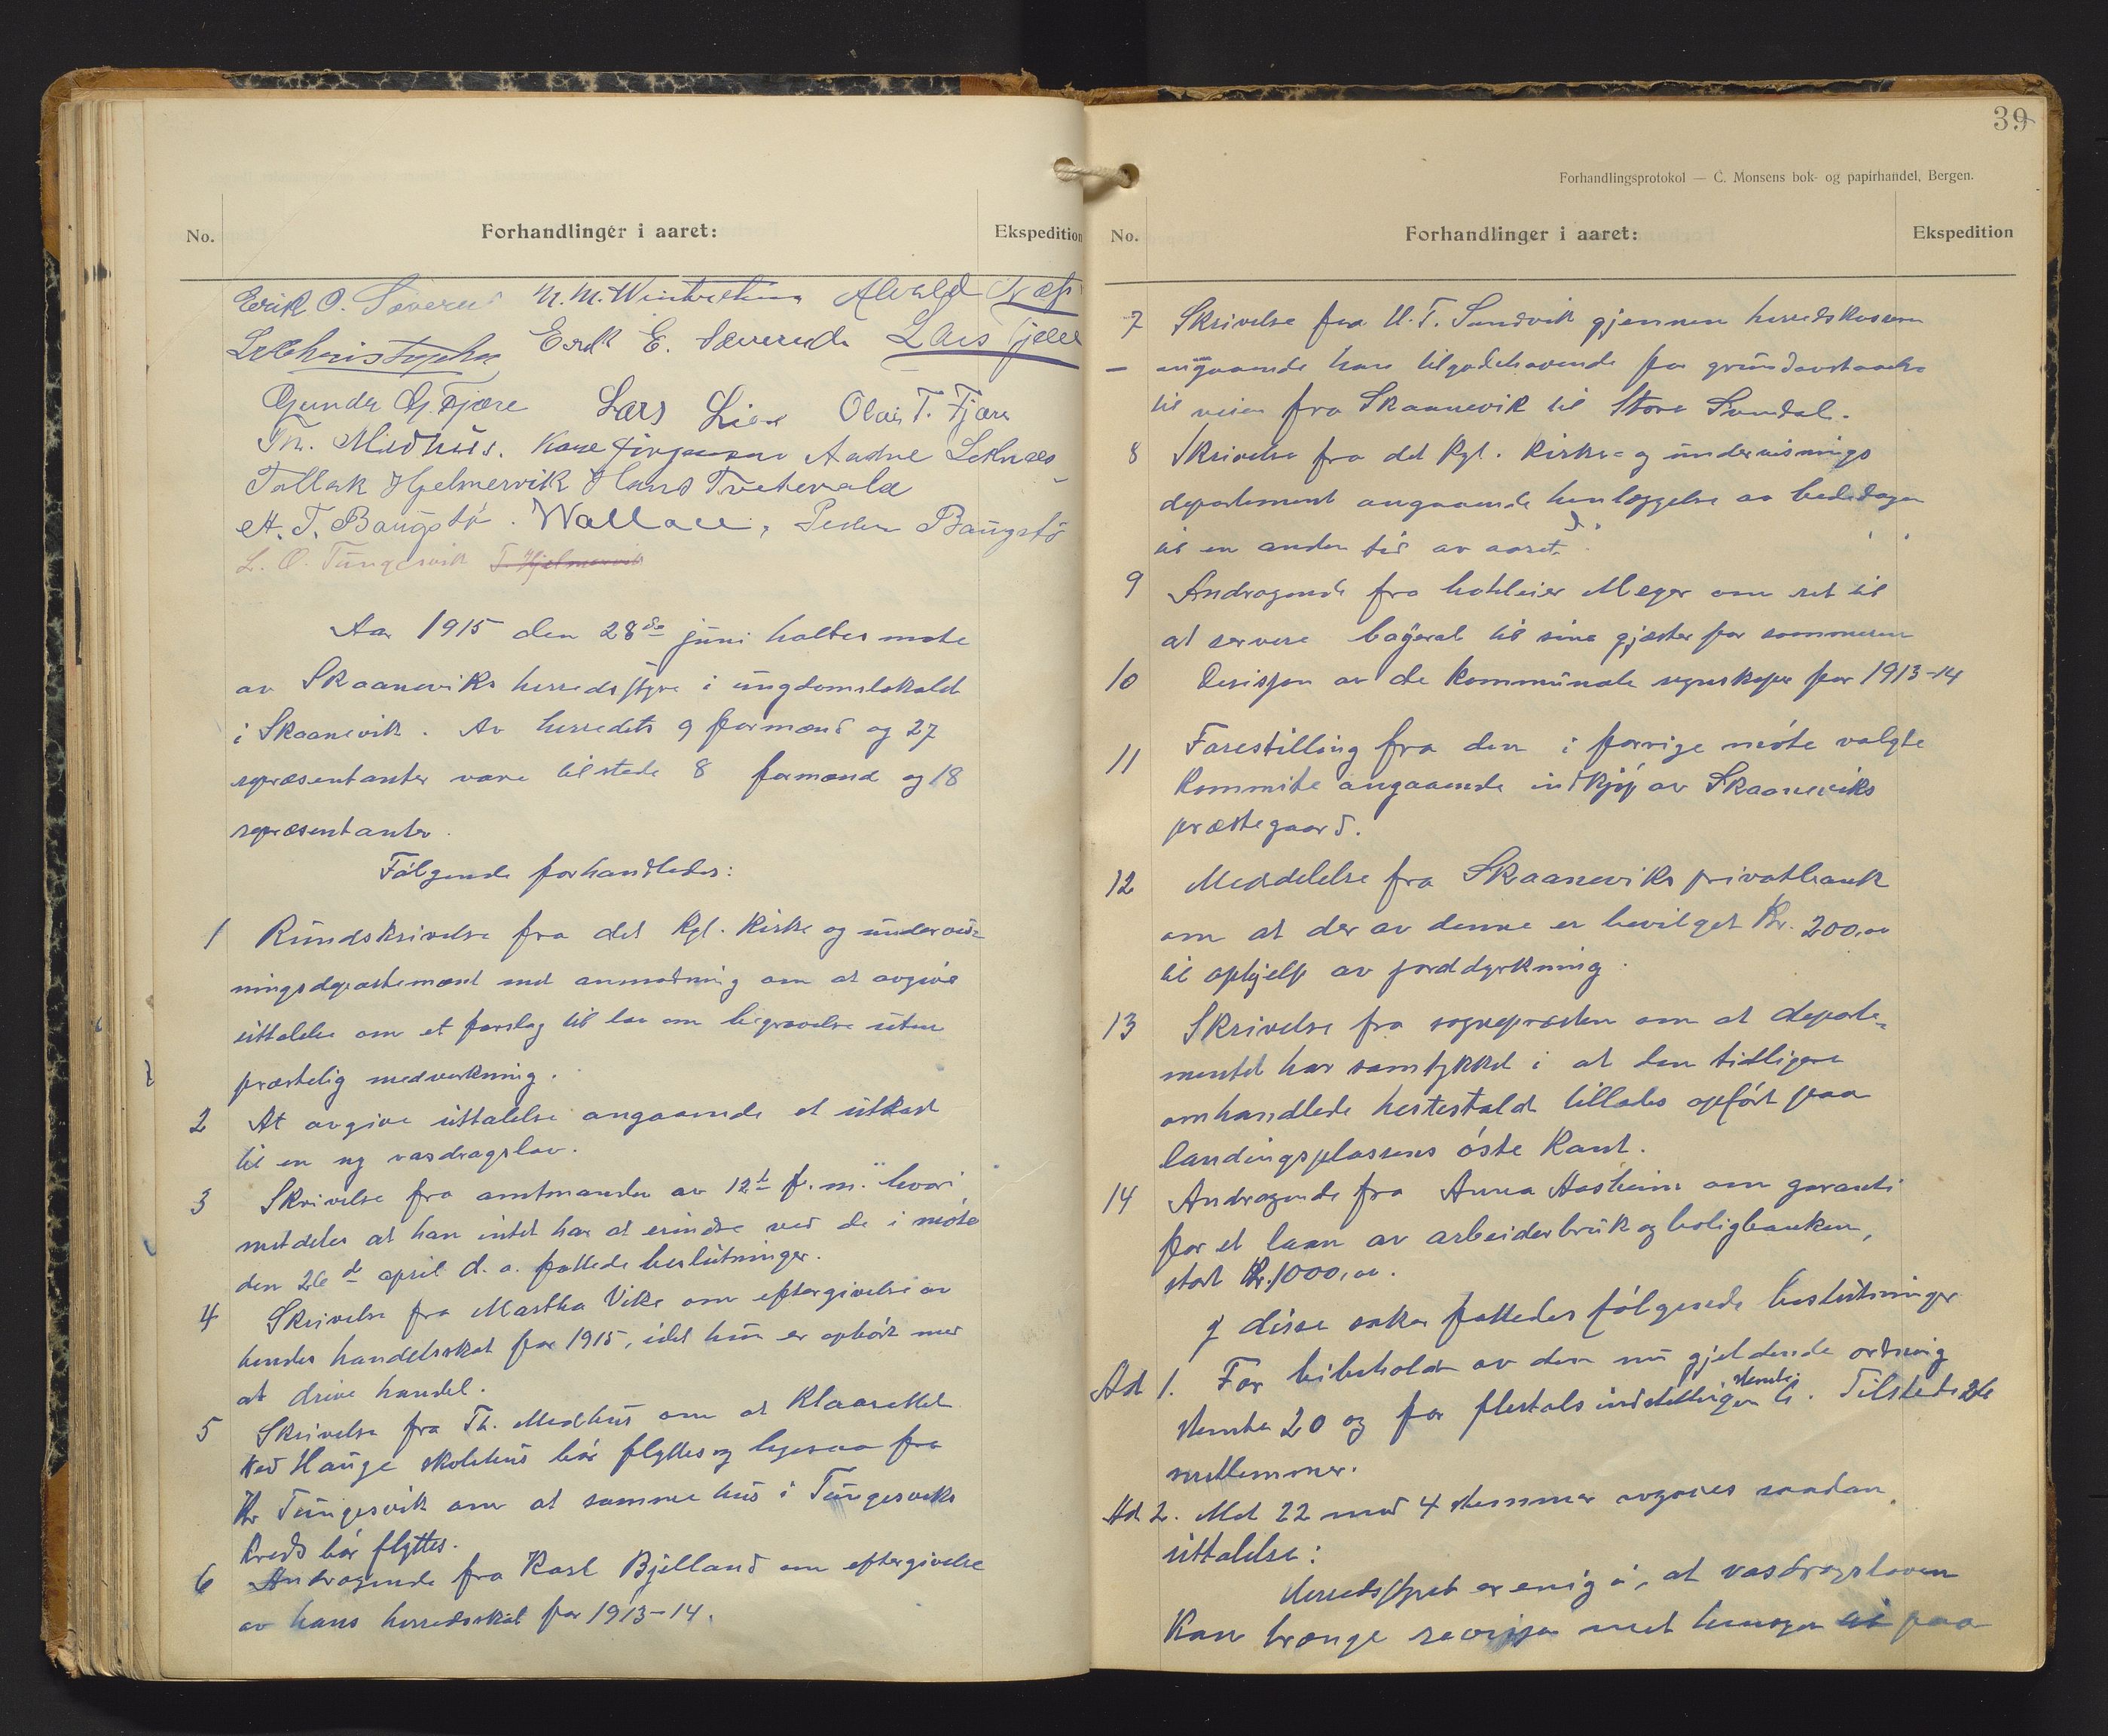 No.
Forhandlinger i aaret:
Ekspedition
Erik O. Sævereid M. M. Vintertun
Erik E. Sævereide Lars Fjære
Gunder G. Fjære Lars Lien Olai T. Fjære
Th. Miðhus. Aadne Leknæs
Tollak Hjelmervik Hans Tveterald
A. T. Baugstø. Wallace, Peder Baugstø
L. O. Tungesvik T. Hjelmervik
Aar 1915 den 28de juni holtes møte
av Skaaneviks herredsstyre i ungdomslokalet
i Skaanevik. Av herredets 9 formænd og 27
repræsentanter vare tilstede 8 formænd og 18
repræsentanter.
Følgende forhandledes:
1 Rundskrivelse fra det Kgl. Kirke og undervis-
ningsdepartement med anmodning om at avgive
uttalelse om et forslag til lov om begravelse uten
præstelig medverkning.
2 At avgive uttalelse angaaende et utkast
til en ny vasdragslov.
3 Skrivelse fra amtmanden av 12te f. m. hvori
meddeles at han intet har at erindre ved de i møte
den 26de april d. a. fattede beslutninger.
4 Skrivelse fra Martha Vike om eftergivelse av
hendes handelsskat for 1915, idet hun er ophørt med
at drive handel.
5 Skrivelse fra Th. Medhus om at Klosettet
ved Hauge skolehus bør flyttes og ligesaa fra
Kr Tungesvik om at samme hus i Tungesviks
kreds bør flyttes.
6 Andragende fra Karl Bjelland om eftergivelse
av hans herredsskat for 1913-14.
39
Forhandlingsprotokol — C. Monsens bok- og papirhandel, Bergen.
No.
Forhandlinger i aaret:
Ekspedition
7 Skrivelse fra U. T. Sandvik gjennem herredskasseren
- angaaende hans tilgodehavende for grundavstaaelse
til veien fra Skaanevik til Store Sundal.
8 Skrivelse fra det Kgl. Kirke- og undervisnings
departement angaaende henlæggelse av bededagen
til en anden tid av aaret.
9 Andragende fra hotleier Meyer om ret til
at servere bayerøl til sine gjæster for sommeren
10 Desisjon av de kommunale regnskaper for 1913-14
11 Forestilling fra den i forrige møte valgte
Kommite angaaende indkjøp av Skaaneviks
præstegaard.
12 Meddelelse fra Skaaneviks privatbank
om at der av denne er bevilget Kr. 200,00
til ophjelp av jorddyrkning.
13 Skrivelse fra sognepræsten om at departe-
mentet har samtykket i at den tidligere
omhandlede hestestald tillades opført paa
landingsplassens øste Kant.
14 Andragende fra Anna Aasheim om garanti
for et laan av arbeiderbruk og boligbanken,
stort Kr. 1000,00.
I disse saker fattedes følgende beslutninger
Ad 1. For bibehold av den nu gjeldende ordning
stemte 20 og for flertalsindstillingen stemte 6. Tilstede 26
medlemmer.
Ad 2. Med 22 mod 4 stemmer avgaves saadan
uttalelse:
Herredsstyret er enig i, at vasdragsloven
kan trænge revisjon med hensyn til paa